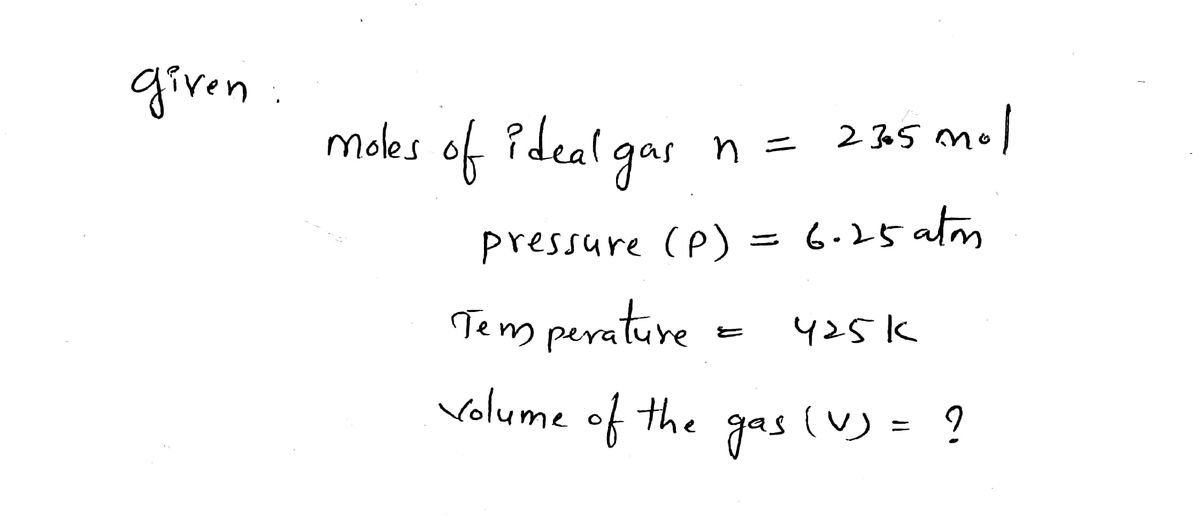 given :
moles of ideal gas n = 23.5 mol
pressure (P) = 6.25 atm
Temperature = 425 K
Volume of the gas (V) = ?